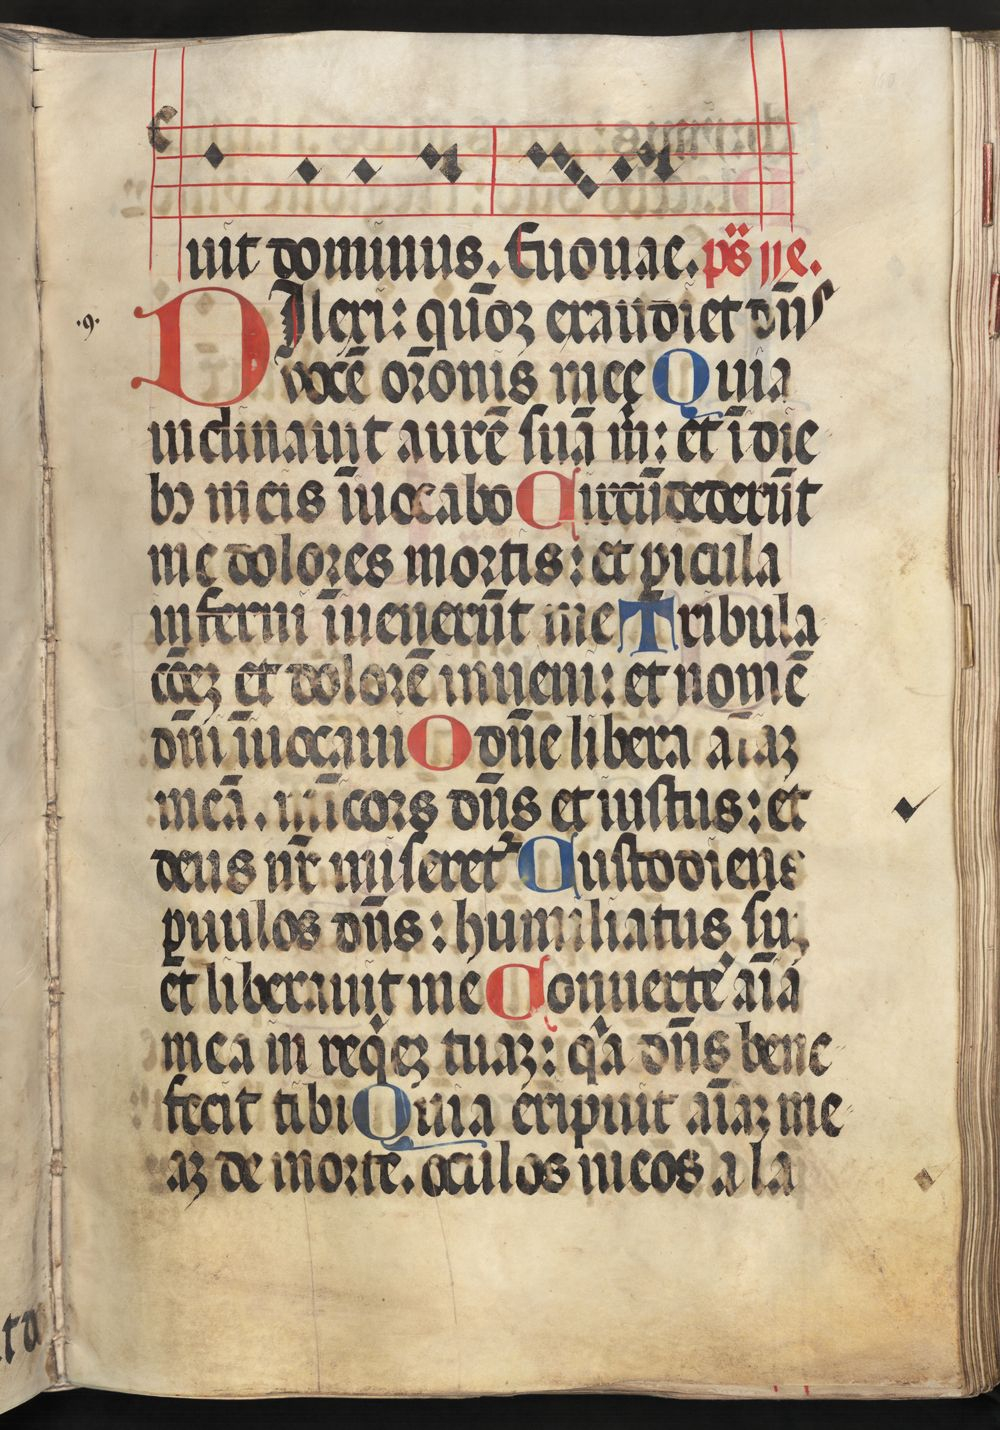 uit dominus. Euouae. ps̄ iie.
.9.
DIlexi: qūoꝫ exaudiet dn̄s
vocē or̄onis meę Quia
inclinauit aurē suā m̄: et ī die
bꝫ meis īuocabo Circūdederūt
me dolores mortis: et ꝑicula
inferni īuenerūt me Tribula
c̄oeꝫ et dolorē inueni: et nomē
dn̄i īuocaui O dn̄e libera aīaꝫ
meā. mīcors dn̄s et iustus: et
deus nr̄ miseret᷑ Custodiens
ꝑuulos dn̄s: humiliatus suꝫ
et liberauit me Conuerte aīa
mea in req̇eꝫ tuaꝫ: qᵃ dn̄s bene
fecit tibi Quia eripuit aīaꝫ me
aꝫ de morte. oculos meos a la